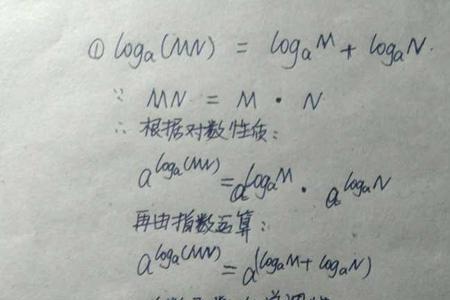 ① logₐ(MN) = logₐM + logₐN.
∵ MN = M · N
∴ 根据对数性质:
a^logₐ(MN) = a^logₐM · a^logₐN
再由指数运算:
a^logₐ(MN) = a^(logₐM + logₐN)